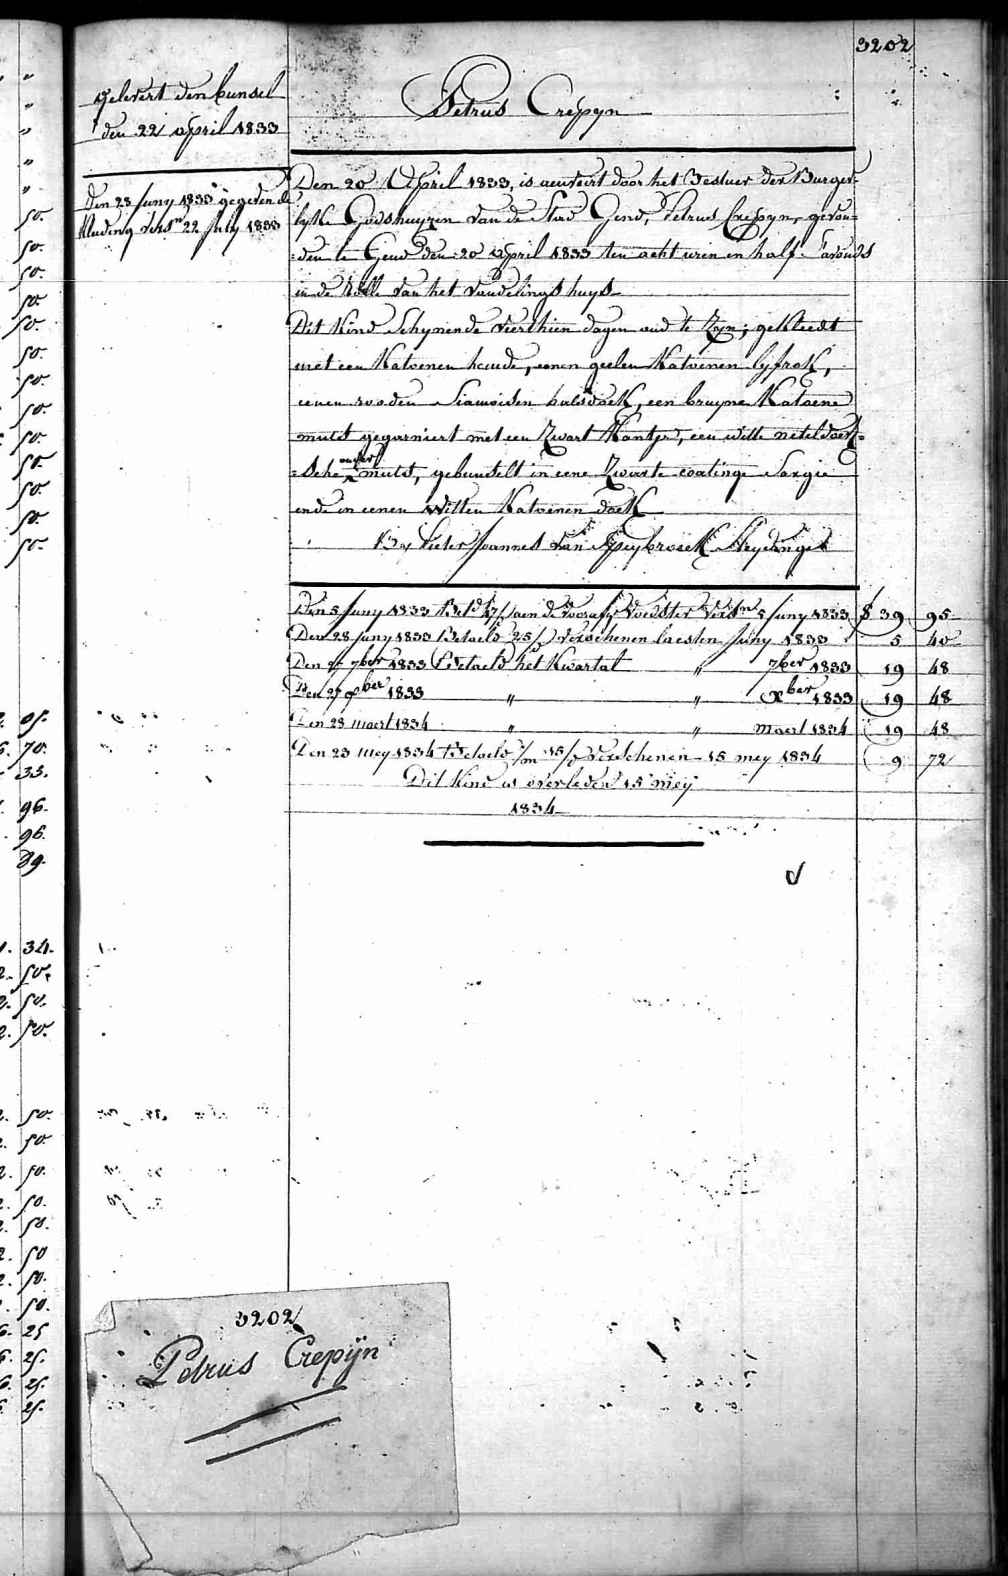 3202
gelevert den bunsel
den 22 april 1833
Petrus Crepyn
den 23 juny 1833 gegeven de
kleeding vers.n 22 july 1833
Den 20 April 1833, is aenveirt door het Bestuer der Burger-
lyke Godshuyzen van de Stad Gend, Petrus Crepyn, gevon=
=den te Gend den 20 april 1833 ten acht uren en half 's avonds
in de Rolle van het vondelingshuys
Dit Kind Schynende vierthien dagen oud te Zyn; gekleedt
met een Katoenen hemde, eenen geelen Katoenen lyfrok,
eenen rooden Siamoisen halsdoek, een bruyne Katoene
muts gegarniert met een Zwart Kantje, een witte neteldoek=
=sche onder muts, gebunselt in eene Zwarte coatinge Sargie
ende in eenen Witten Katoenen doek
By Pieter Joannes Van Speybroeck Sleydinge
Den 5 Juny 1833 Bet.d 47/ aen de vooraf.de Voedster vers.n 5 juny 1833 f 39 95
Den 28 juny 1833 Betaeld 25/ verschenen laesten juny 1833 5 40
Den 27 7ber 1833 Betaeld het Kwartal " 7ber 1833 19 48
Den 27 9ber 1833 " " Xber 1833 19 48
Den 28 maert 1834 " " maert 1834 19 48
Den 23 mey 1834 Betaeld 1/m 15/ verschenen 15 mey 1834 9 72
Dit Kind is overleden 15 mey
1834
d
3202
Petrus Crepÿn
50.
50.
50.
50.
50.
50.
50.
50.
50.
50.
50.
50.
50.
05.
70.
33.
96.
96.
89.
34.
50.
50.
50.
50.
50.
50.
50.
50.
50
50.
50.
25
25.
25.
25.